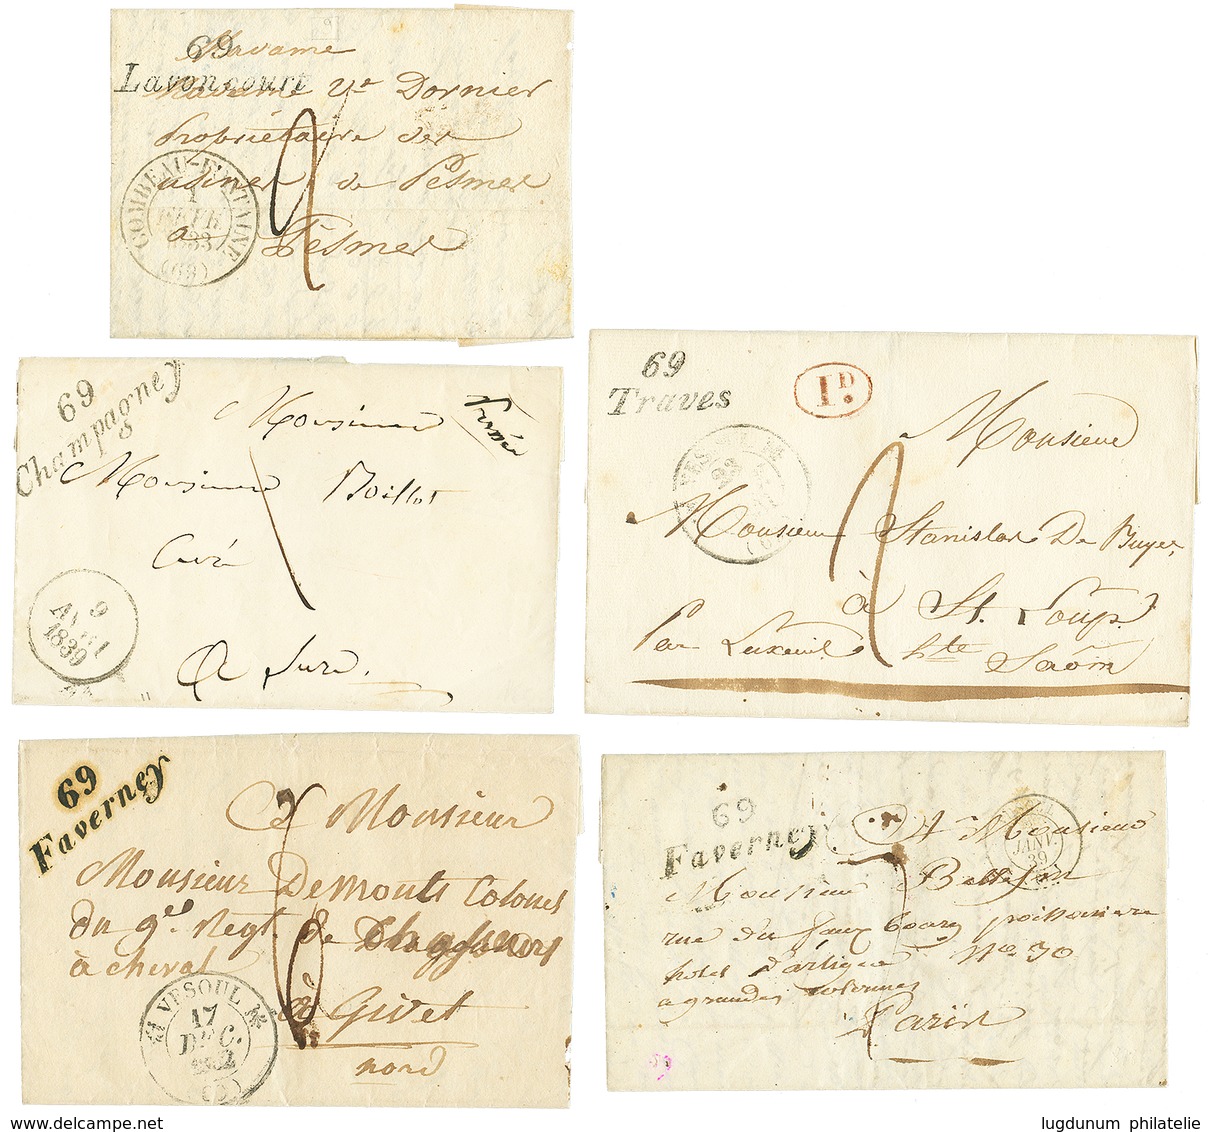 69
Lavoncourt
Madame
Madame Ve Dornier
Propriétaire des
usines de Pesmes
a Pesmes
COMBEAU-FONTAINE
1
FEVR
1833
(69)
2
69
Champagney
Monsieur
Monsieur Boillot
Curé
A Lure
1
9
AVRIL
1839
69
Traves
1D.
VESOUL
23
2
Monsieur
Monsieur Stanislas De Buyer
à St. Loup
Par Luxeuil hte Saône
69
Faverney
A Monsieur
Monsieur Demonts Colonel
du 9e Regt. de
à cheval
à Givet
nord
VESOUL
17
DEC.
1832
(69)
69
Faverney
A Monsieur
Monsieur
rue du faux bourg poissonniere
hotel No 30
a grandes colonnes
Paris
JANV.
39
delcampe.net
lugdunum philatelie